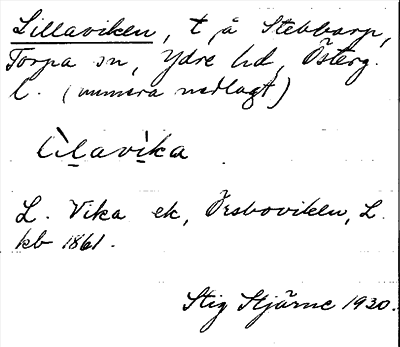 Lillaviken, t, å Stebbarp,
Torpa sn, Ydre hd, Österg.
l. (numera nedlagt)
lìlavìka
L. Vika ek, Örsboviken, L.
kb 1861.
Stig Stjärne 1930.